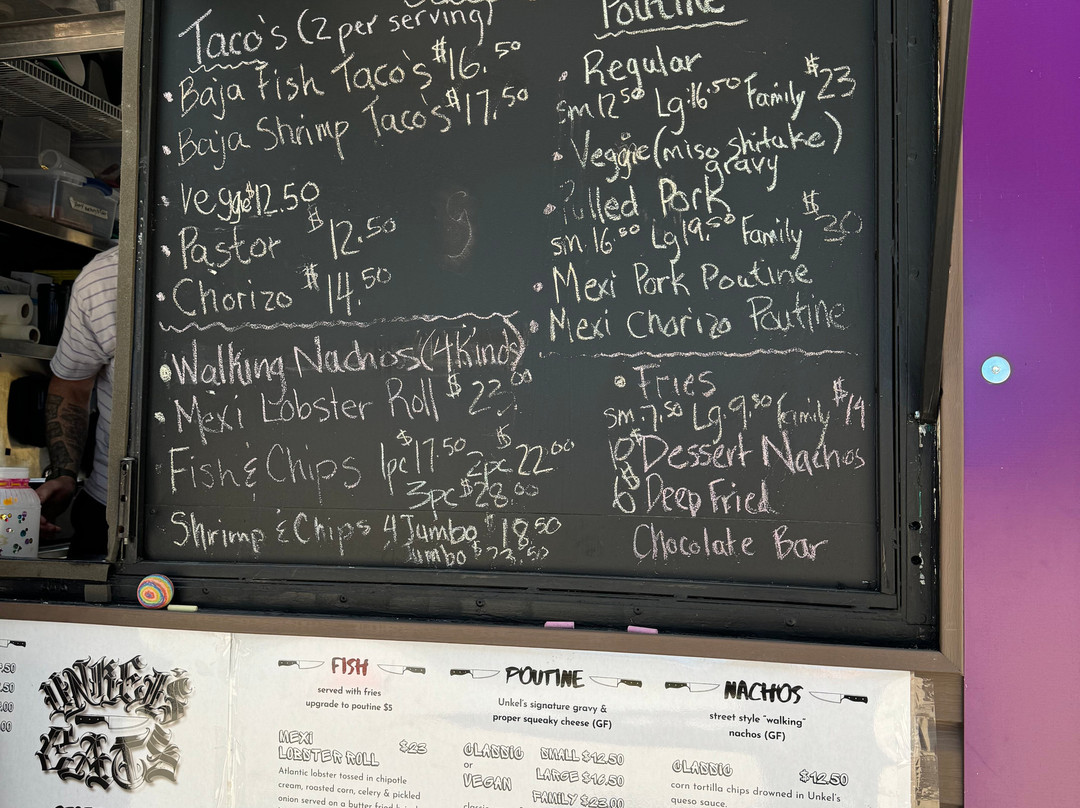 Taco's (2 per serving)
• Baja Fish Taco's $16.50
• Baja Shrimp Taco's $17.50
• Veggie $12.50
• Pastor $12.50
• Chorizo $14.50
• Walking Nachos (4 Kinds)
• Mexi Lobster Roll $23.00
Fish & Chips 1pc $17.50 2pc $22.00
3pc $28.00
Shrimp & Chips 4 Jumbo $18.50
Jumbo $23.50
Poutine
• Regular
sm 12.50 Lg 16.50 Family $23
• Veggie (miso shirtake)
gravy
• Pulled Pork
sm. 16.50 Lg 19.50 Family $30
• Mexi Pork Poutine
• Mexi Chorizo Poutine
• Fries
sm. 7.50 Lg. 9.50 family $14
Dessert Nachos
Deep Fried
Chocolate Bar
UNKEL'S
EATS
FISH
served with fries
upgrade to poutine $5
MEXI
LOBSTER ROLL $23
Atlantic lobster tossed in chipotle
cream, roasted corn, celery & pickled
onion served on a butter fried
POUTINE
Unkel's signature gravy &
proper squeaky cheese (GF)
CLASSIC
or
VEGAN
SMALL $12.50
LARGE $16.50
FAMILY $23.00
NACHOS
street style "walking"
nachos (GF)
CLASSIC $12.50
corn tortilla chips drowned in Unkel's
queso sauce.